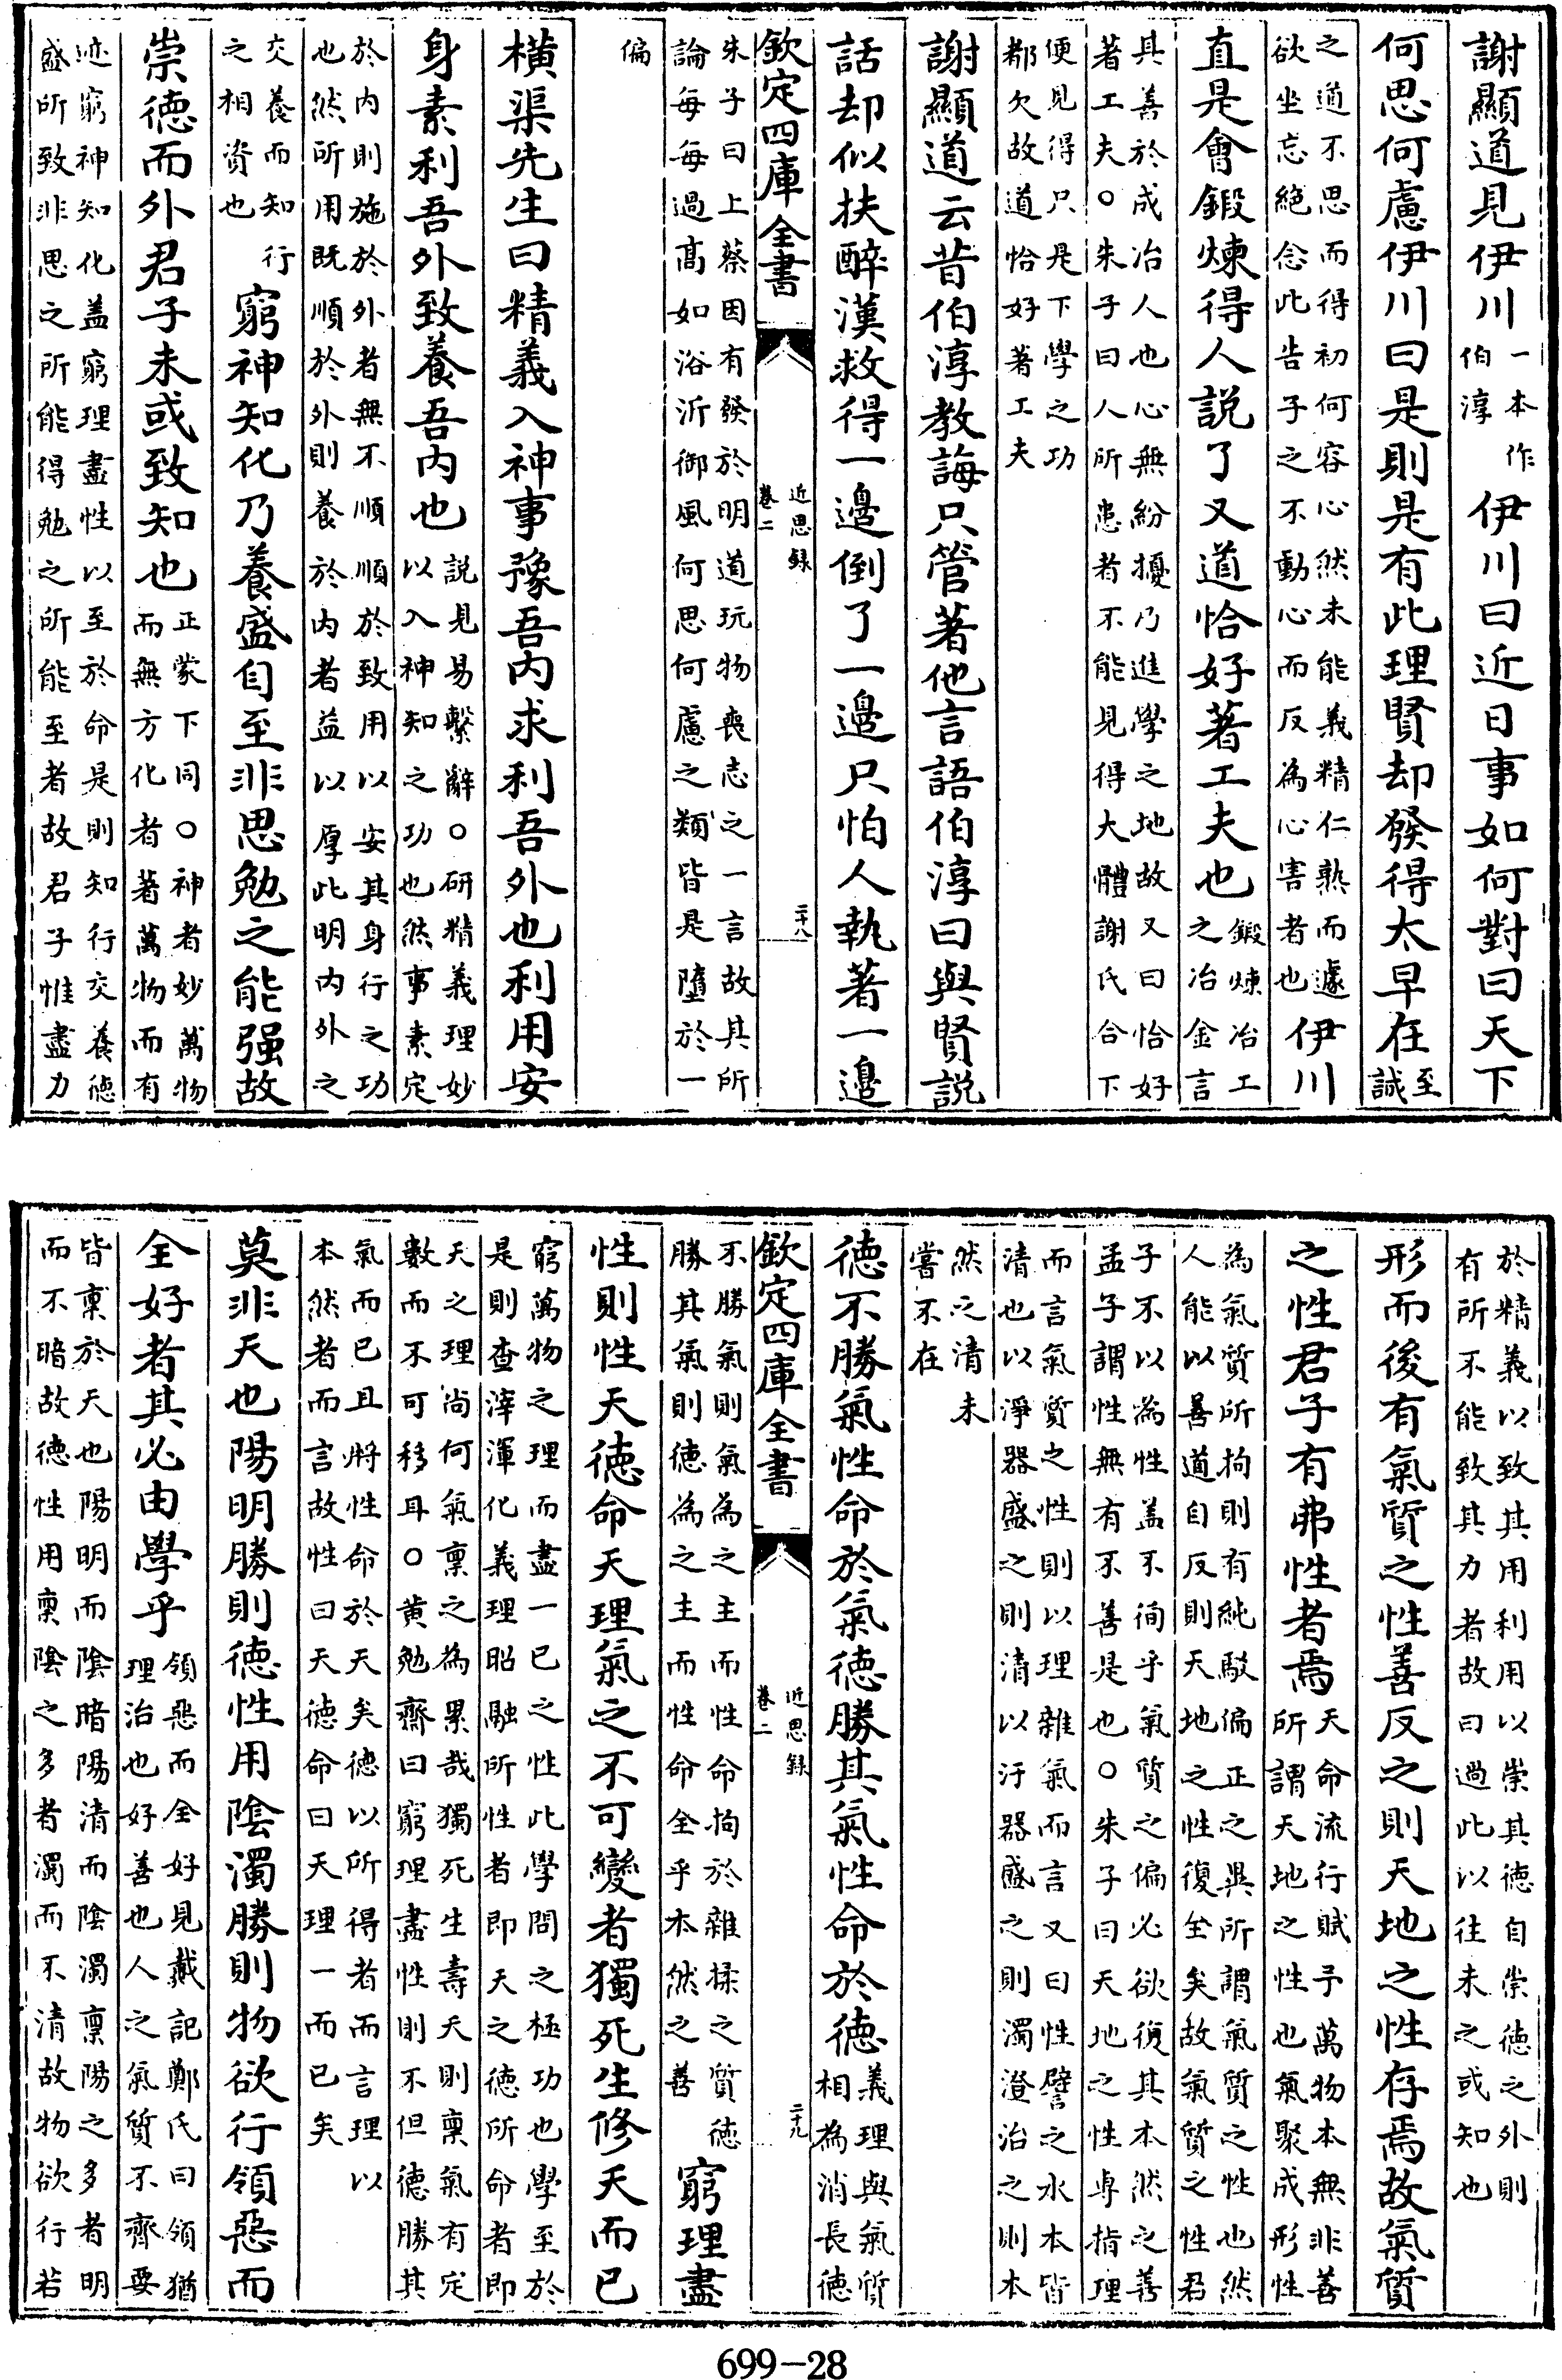 謝顯道見伊川一本作伯淳伊川曰近日事如何對曰天下
何思何慮伊川曰是則是有此理賢却發得太早在至誠
之道不思而得初何容心然未能義精仁熟而遽
欲坐忘絶念此告子之不動心而反為心害者也伊川
直是會鍛煉得人説了又道恰好著工夫也鍛煉冶工之冶金言
其善於成冶人也心無紛擾乃進學之地故又曰恰好
著工夫○朱子曰人所患者不能見得大體謝氏合下
便見得只是下學之功
都欠故道恰好著工夫
謝顯道云昔伯淳教誨只管著他言語伯淳曰與賢説
話却似扶醉漢救得一邊倒了一邊只怕人執著一邊
欽定四庫全書 近思録 卷二 二十八
朱子曰上蔡因有發於明道玩物喪志之一言故其所
論每每過髙如浴沂御風何思何慮之類皆是墮於一
偏
橫渠先生曰精義入神事豫吾内求利吾外也利用安
身素利吾外致養吾内也説見易繫辭○研精義理妙以入神知之功也然事素定
於内則施於外者無不順順於致用以安其身行之功
也然所用既順於外則養於内者益以厚此明内外之
交養而知行之相資也窮神知化乃養盛自至非思勉之能强故
崇徳而外君子未或致知也正蒙下同○神者妙萬物而無方化者著萬物而有
迹窮神知化盖窮理盡性以至於命是則知行交養徳
盛所致非思之所能得勉之所能至者故君子惟盡力
於精義以致其用利用以崇其徳自崇徳之外則
有所不能致其力者故曰過此以往未之或知也
形而後有氣質之性善反之則天地之性存焉故氣質
之性君子有弗性者焉天命流行賦予萬物本無非善所謂天地之性也氣聚成形性
為氣質所拘則有純駁偏正之異所謂氣質之性也然
人能以善道自反則天地之性復全矣故氣質之性君
子不以為性盖不徇乎氣質之偏必欲復其本然之善
孟子謂性無有不善是也○朱子曰天地之性専指理
而言氣質之性則以理雜氣而言又曰性譬之水本皆
清也以淨器盛之則清以汙器盛之則濁澄治之則本
然之清未
嘗不在
徳不勝氣性命於氣徳勝其氣性命於徳義理與氣質相為消長徳
欽定四庫全書 近思録 卷二 二十九
不勝氣則氣為之主而性命拘於雜揉之質徳
勝其氣則徳為之主而性命全乎本然之善窮理盡
性則性天徳命天理氣之不可變者獨死生修夭而已
窮萬物之理而盡一已之性此學問之極功也學至於
是則査滓渾化義理昭融所性者即天之徳所命者即
天之理尚何氣禀之為累哉獨死生壽夭則禀氣有定
數而不可移耳○黄勉齋曰窮理盡性則不但徳勝其
氣而已且將性命於天矣徳以所得者而言理以
本然者而言故性曰天徳命曰天理一而已矣
莫非天也陽明勝則徳性用陰濁勝則物欲行領惡而
全好者其必由學乎領惡而全好見戴記鄭氏曰領猶理治也好善也人之氣質不齊要
皆禀於天也陽明而陰暗陽清而陰濁禀陽之多者明
而不暗故徳性用禀陰之多者濁而不清故物欲行若
699-28